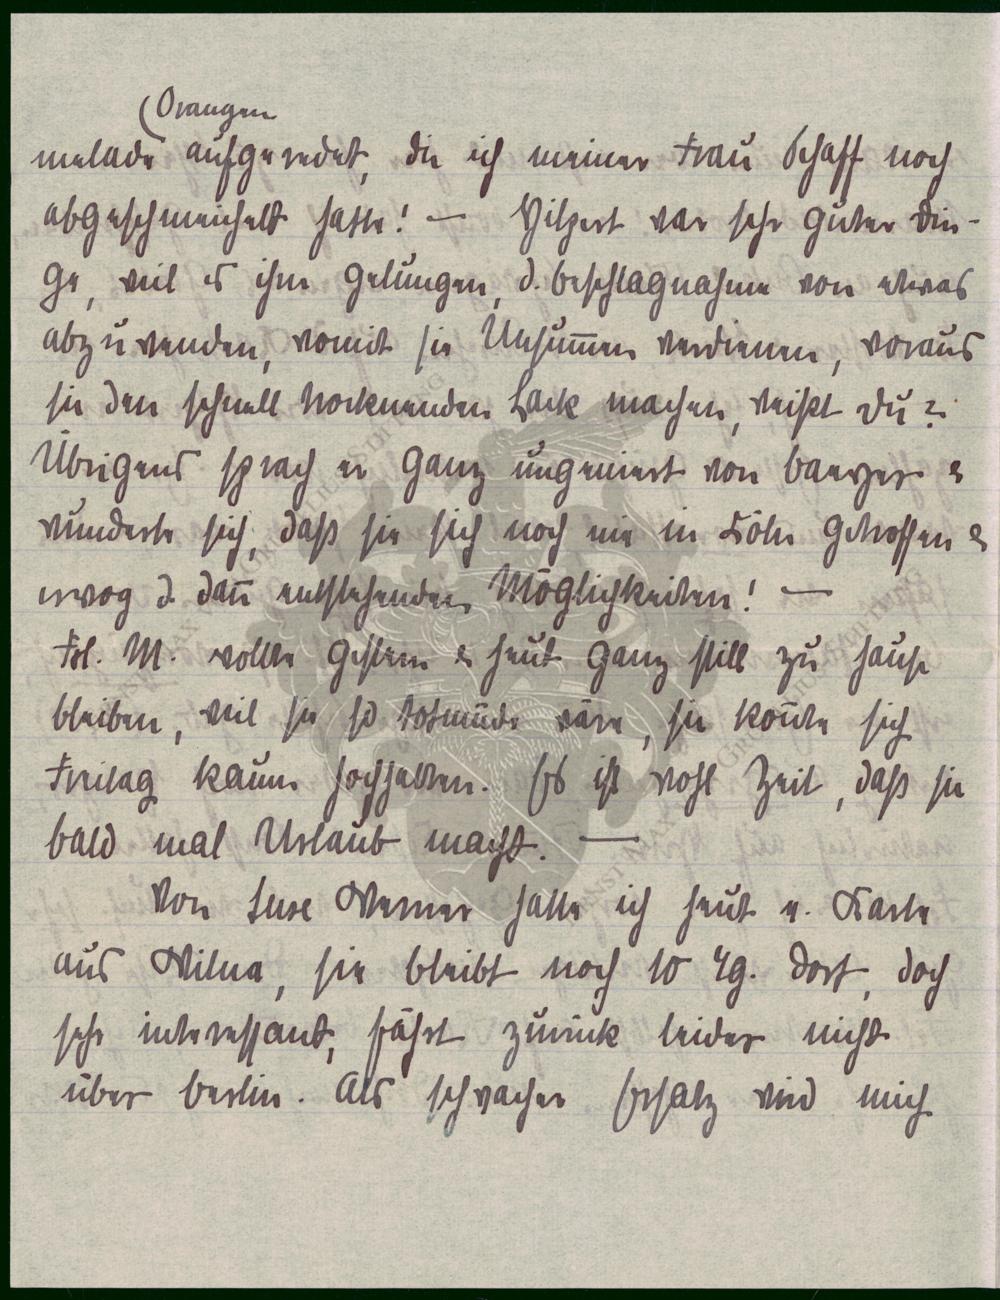 (Orangen
melade aufgeredet, die ich meiner Frau Schaff noch
abgeschmeichelt hatte! — Hilpert war sehr guter Din-
ge, weil es ihm gelungen, d. Beschlagnahme von etwas
abzuwenden, womit sie Unsum̅en verdienen, woraus
sie den schnell trocknenden Lack machen, weißt Du?
Übrigens sprach er ganz ungeniert von &
wunderte sich, daß sie sich noch nie in Köln getroffen &
erwog d. dan̅ entstehenden Möglichkeiten! —
Frl. M. wollte gestern & heut ganz still zu Hause
bleiben, weil sie so totmüde wäre, sie kon̅te sich
Freitag kaum hochhalten. Es ist wohl Zeit, daß sie
bald mal Urlaub macht. —
Von Luse Werner hatte ich heut e. Karte
aus Wilna, sie bleibt noch 10 Tg. dort, doch
sehr interessant, fährt zurück leider nicht
über Berlin. Als schwacher Ersatz wird mich